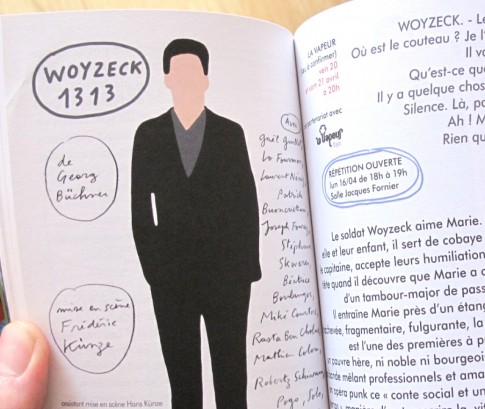 WOYZECK
1313
de
Georg
Büchner
mise en scène
Frédéric
Künze
assistant mise en scène Hans Künze
Avec
Gaël
Laurent
Patrick
Joseph
Stéphane
Skwares,
Béatrice
Boulanger,
Miké
Rasta Ben
Mathieu Colon,
Robertz
Pogo, Solo,
LA VAPEUR
confirmer)
ven 20
sam 21 avril
à 20h
partenariat avec
la Vapeur
RÉPÉTITION OUVERTE
lun 16/04 de 18h à 19h
Salle Jacques Fornier
WOYZECK. - Le
Où est le couteau ? Je l'
Il va
Qu'est-ce que
Il y a quelque chos
Silence. Là, pa
Ah ! M
Rien qu
Le soldat Woyzeck aime Marie.
elle et leur enfant, il sert de cobaye
capitaine, accepte leurs humiliation
tête quand il découvre que Marie a c
d'un tambour-major de pass
Il entraîne Marie près d'un étang
achevée, fragmentaire, fulgurante, la
est l'une des premières à p
pauvre hère, ni noble ni bourgeois
mêlant professionnels et ama
opéra punk ce « conte social et un